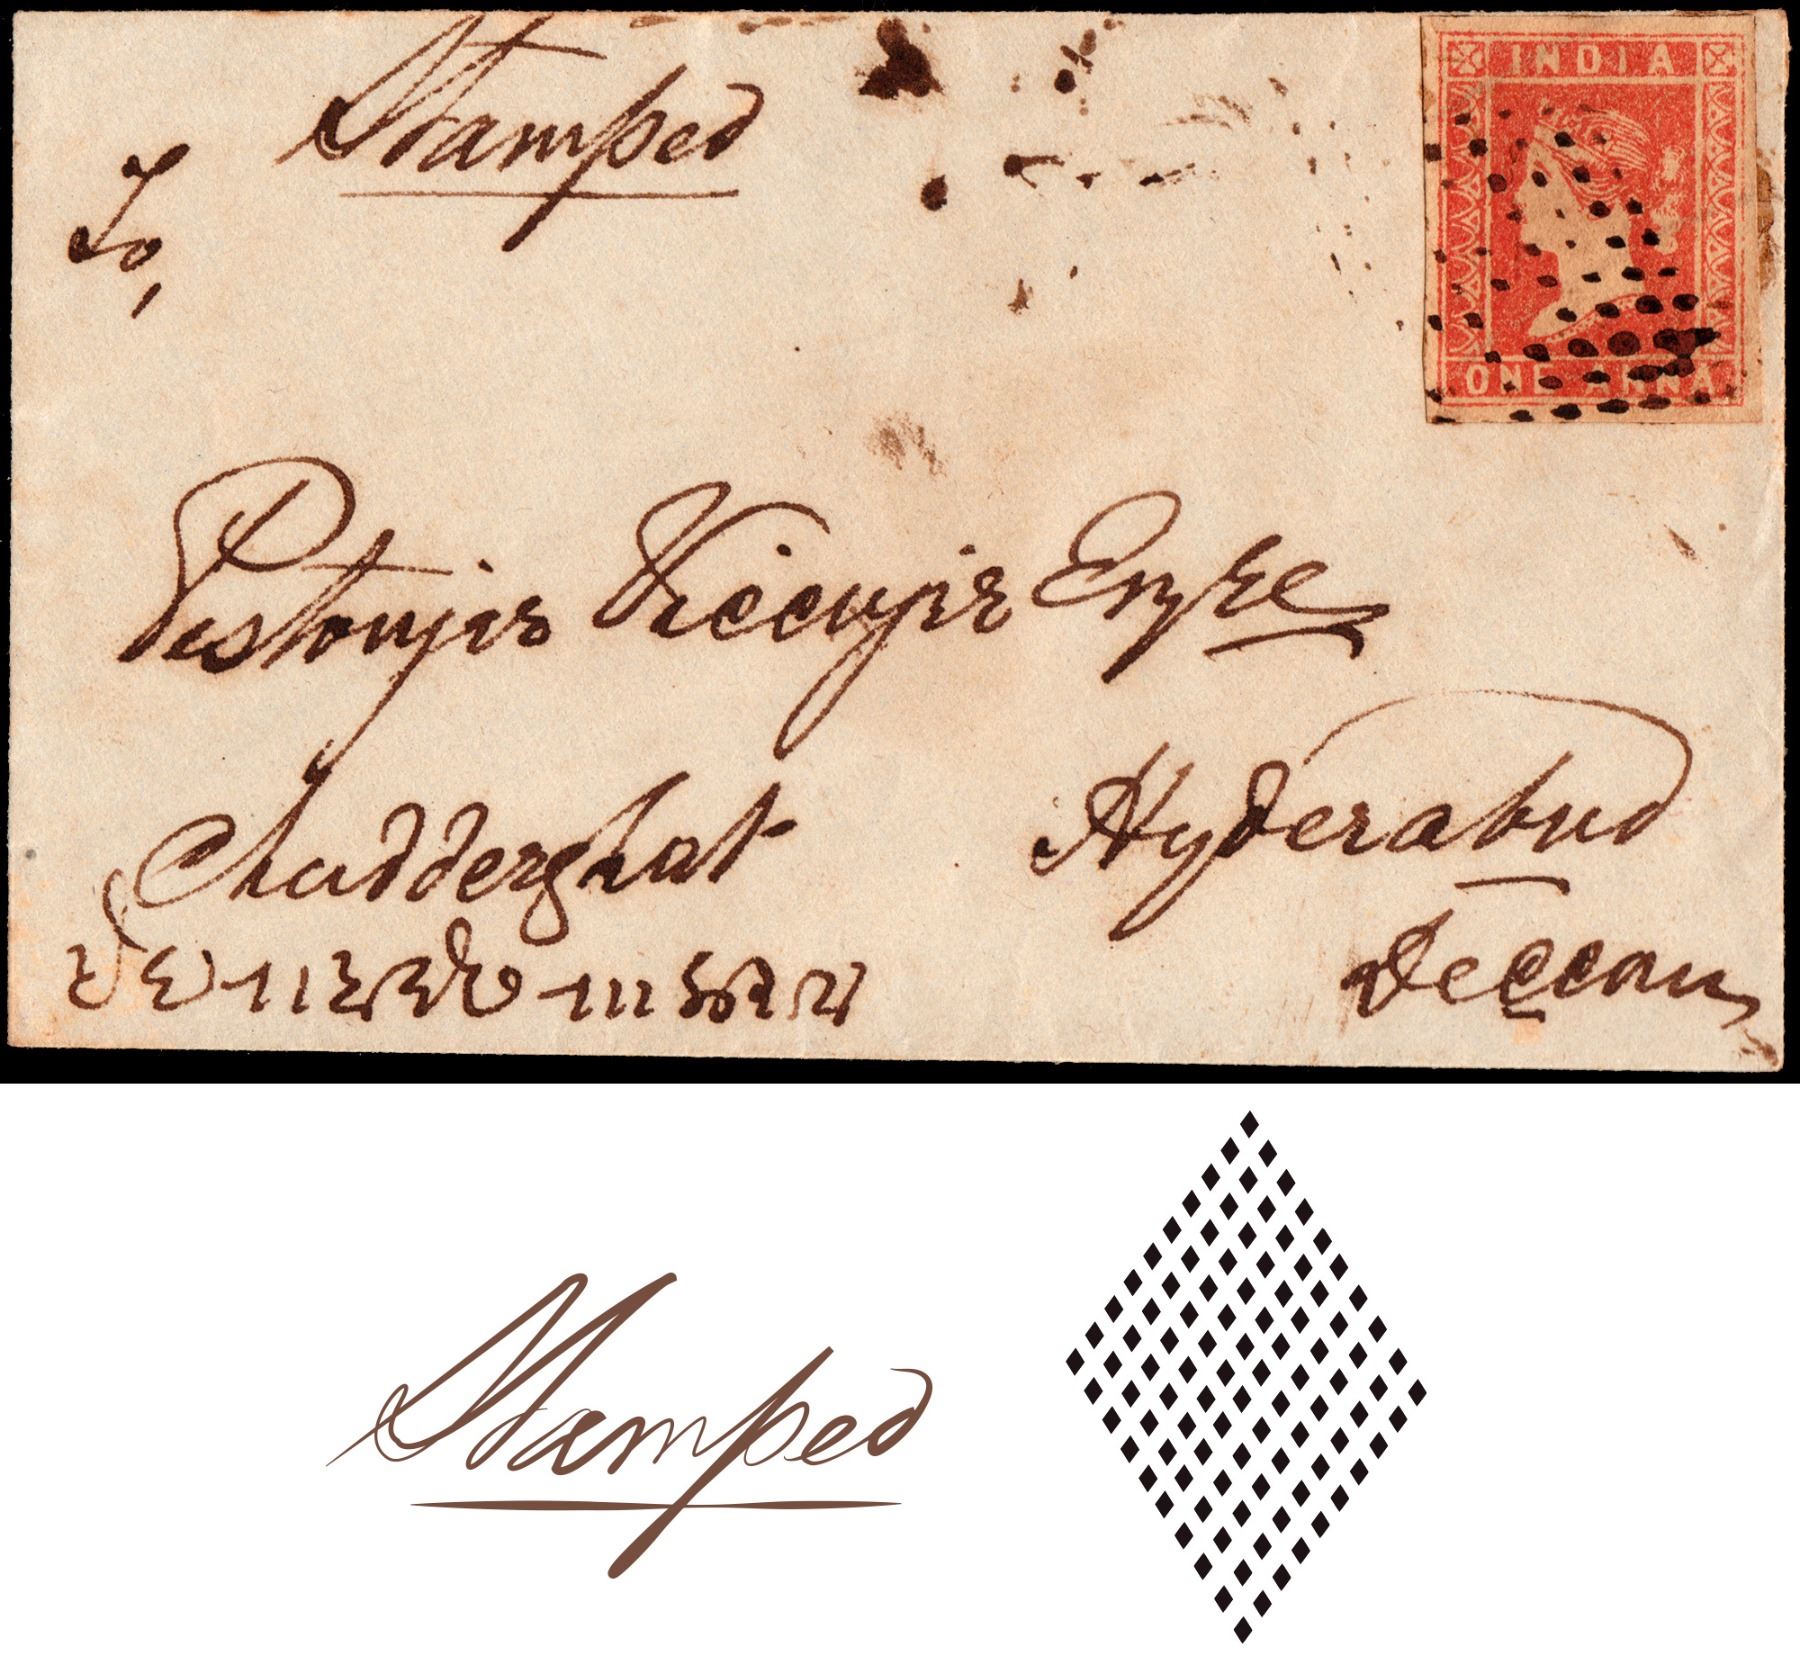 Stamped
To,
INDIA
ONE ANNA
Pestonjee Viccajee Esqre
Chudderghat
Hyderabad
Deccan
Stamped